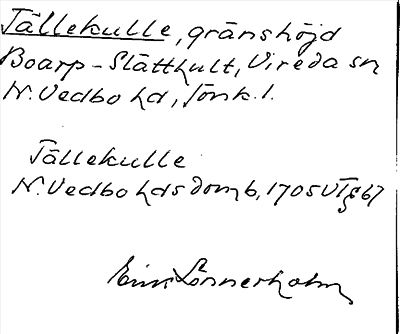 Tällekulle, gränshöjd
Boarp - Slätthult, Vireda sn
N. Vedbo hd, Jönk. l.
Tällekulle
N. Vedbo hds domb. 1705 VTg 67
Einar Lönnerholm